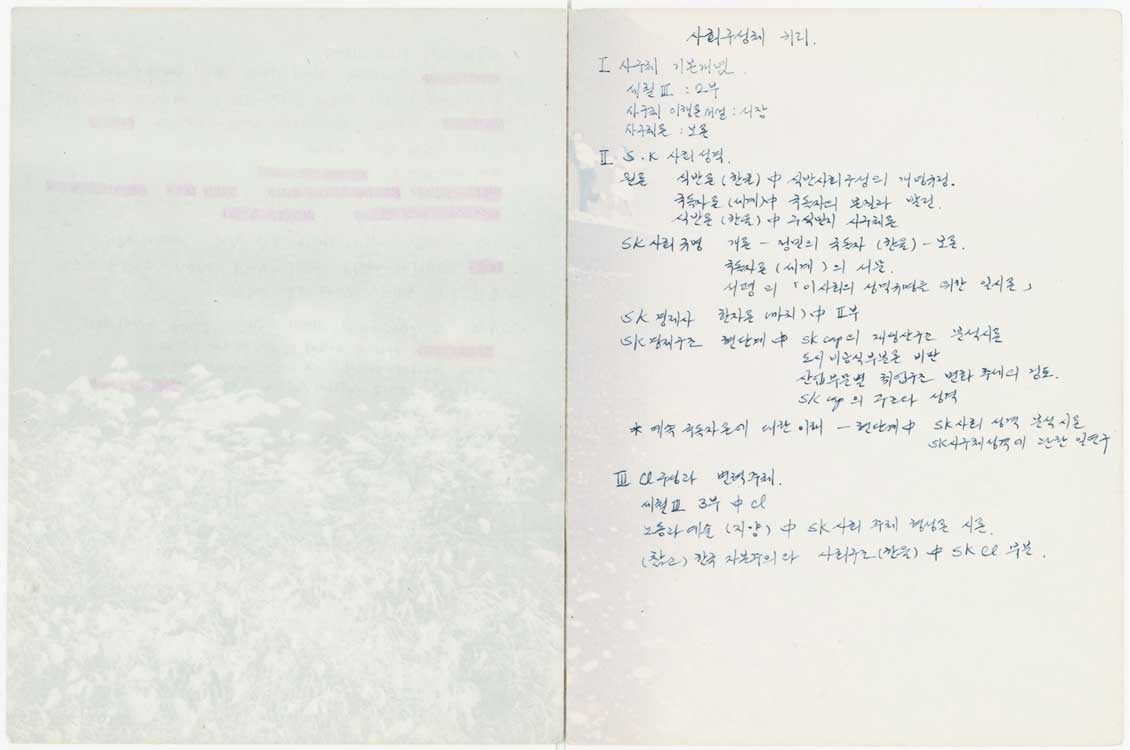 사회구성체 커리.
I 사구체 기본개념.
세철 III : 2부
사구체 이행논쟁서설 : 서장
사구체론 : 보론
II S.K 사회성격.
원론 식반론 (한울) 中 식반사회구성의 개념규정.
국독자론 (세계) 中 국독자의 본질과 발전.
식반론 (한울) 中 구식민지 사구체론
SK사회규명 개론 - 정민의 국독자 (한울) - 보론.
국독자론 (세계) 의 서문.
서평의 「이사회의 성격규명을 위한 일시론」
SK 경제사 한자론 (까치) 中 II부
SK경제구조 현단계 中 SK cap의 재생산구조 분석시론
도시비공식부문론 비판
산업부문별 취업구조 변화 추세의 검토.
SK cap 의 구조와 성격
* 예속 국독자론에 대한 이해 - 현단계中 SK사회 성격 분석시론
SK사구체성격에 관한 일연구
III Cl구성과 변혁주체.
세철 III 3부 中 Cl
노동과예술 (지양) 中 SK사회 주체 형성론 시론.
(참고) 한국 자본주의와 사회구조 (한울) 中 SK Cl 부분.